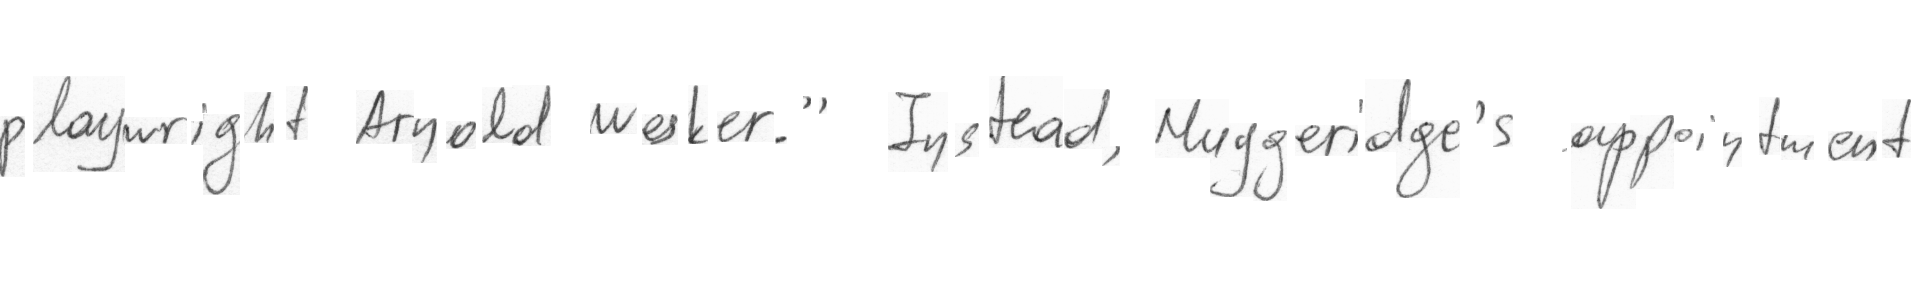 playwright Arnold Wesker.” Instead, Muggeridge's appointment